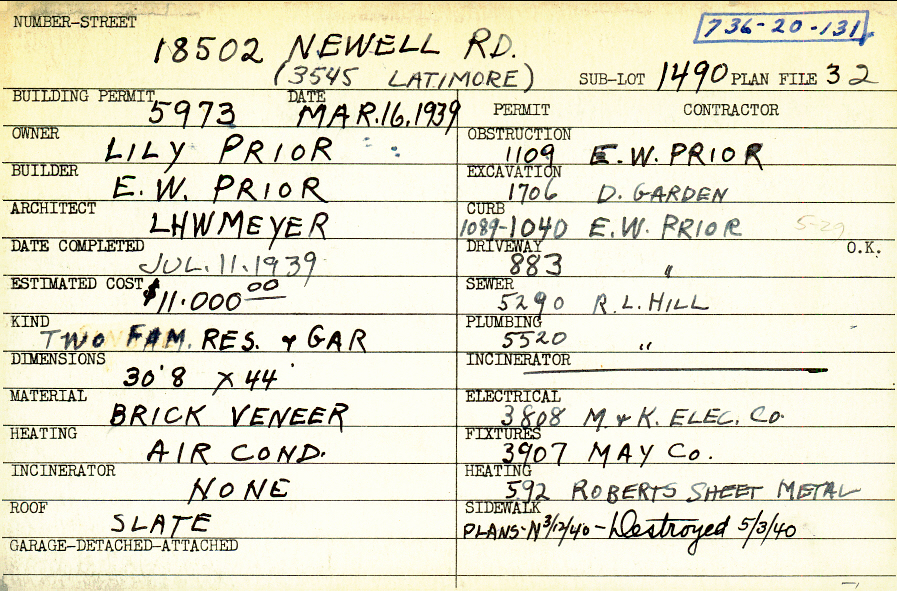 NUMBER-STREET
736-20-131
18502 NEWELL RD.
(3545 LATIMORE)
SUB-LOT 1490 PLAN FILE 32
BUILDING PERMIT 5973 DATE MAR.16,1939
PERMIT CONTRACTOR
OWNER LILY PRIOR
OBSTRUCTION 1109 E.W. PRIOR
BUILDER E. W. PRIOR
EXCAVATION 1706 D. GARDEN
ARCHITECT LHWMEYER
CURB 1089-1040 E.W. PRIOR 5-29
DATE COMPLETED JUL.11.1939
DRIVEWAY 883 " O.K.
ESTIMATED COST $11.000 00
SEWER 5290 R.L. HILL
KIND TWO FAM. RES. & GAR
PLUMBING 5520 "
DIMENSIONS 30'8 X 44'
INCINERATOR
MATERIAL BRICK VENEER
ELECTRICAL 3808 M. & K. ELEC. Co.
HEATING AIR COND.
FIXTURES 3907 MAY Co.
INCINERATOR NONE
HEATING 592 ROBERTS SHEET METAL
ROOF SLATE
SIDEWALK
PLANS-N 3/12/40 - Destroyed 5/3/40
GARAGE-DETACHED-ATTACHED